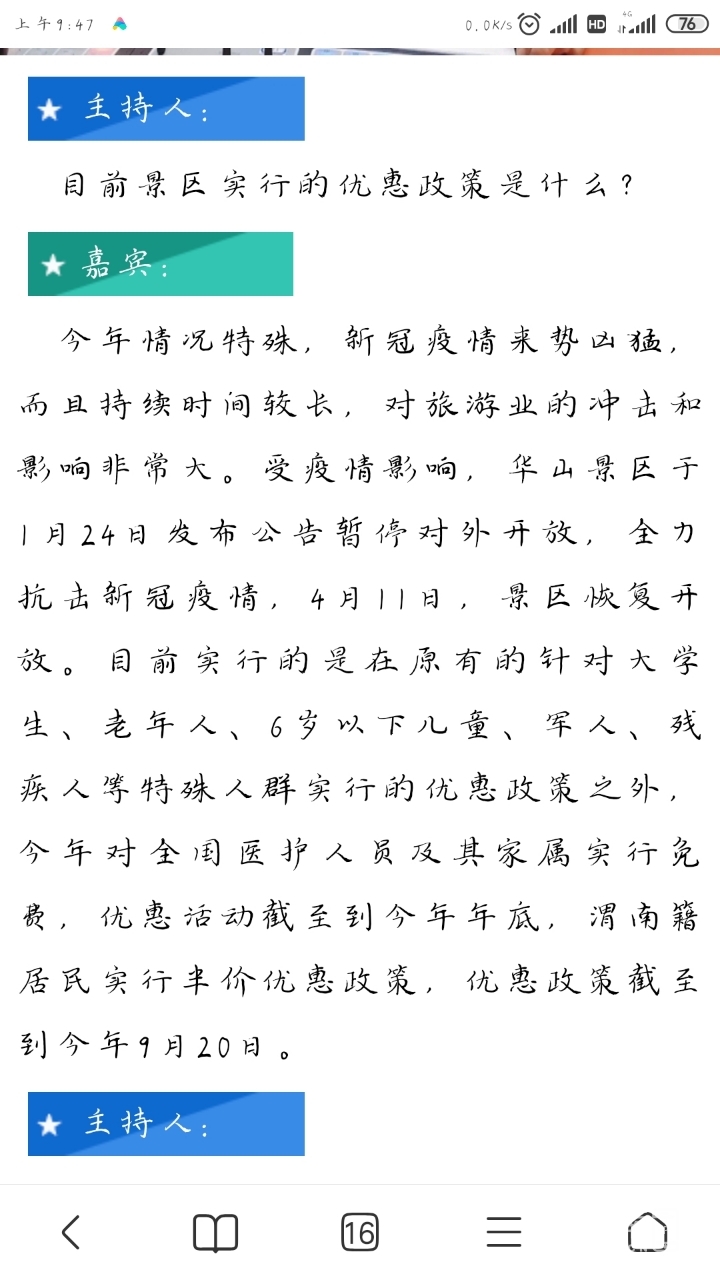 上午9:47
0.0K/s
HD
4G
76
主持人:
目前景区实行的优惠政策是什么?
嘉宾:
今年情况特殊,新冠疫情来势凶猛,
而且持续时间较长,对旅游业的冲击和
影响非常大。受疫情影响,华山景区于
1月24日发布公告暂停对外开放,全力
抗击新冠疫情,4月11日,景区恢复开
放。目前实行的是在原有的针对大学
生、老年人、6岁以下儿童、军人、残
疾人等特殊人群实行的优惠政策之外,
今年对全国医护人员及其家属实行免
费,优惠活动截至到今年年底,渭南籍
居民实行半价优惠政策,优惠政策截至
到今年9月20日。
主持人:
16